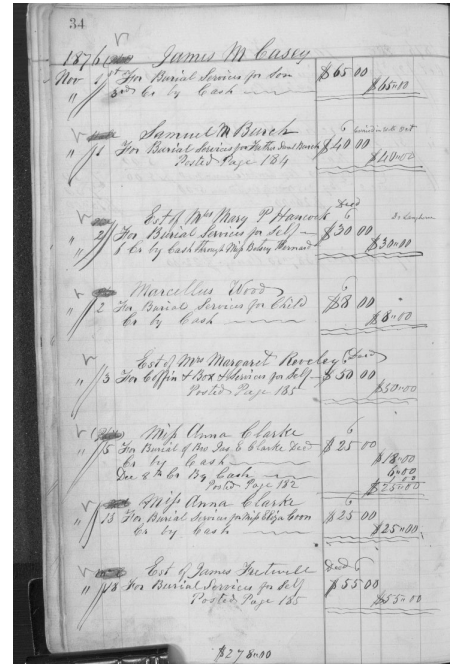 34
1876 James M Casey
Nov 1st For Burial Services for Son $65 00
" 3rd Cr by Cash $65"00
Samuel M Burch 6
" 1 For Burial Services for Father Saml Burch $40 00
Posted Page 184 $40"00
Est of Mrs Mary P Hancock Decd 6
" 2 For Burial Services for Self $30 00
6 Cr by Cash through Miss Betsey $30"00
Marcellus Wood 6
" 2 For Burial Services for Child $8 00
Cr by Cash $8"00
Est of Mrs Margaret Roveley (Decd)
" 3 For Coffin & Box & Services for Self $50 00
Posted Page 185 $50"00
Miss Anna Clarke 6
" 5 For Burial of Mrs Jas. E Clarke Decd $25 00
Cr by Cash $18"00
Dec 8th Cr By Cash 6"00
Posted Page 182 $25"00
Miss Anna Clarke 6
" 15 For Burial Services for Miss Eliza Coon $25 00
Cr by Cash $25"00
Est of James Fretwell Decd 6
" 18 For Burial Services for Self $55 00
Posted Page 185 $55"00
$278"00